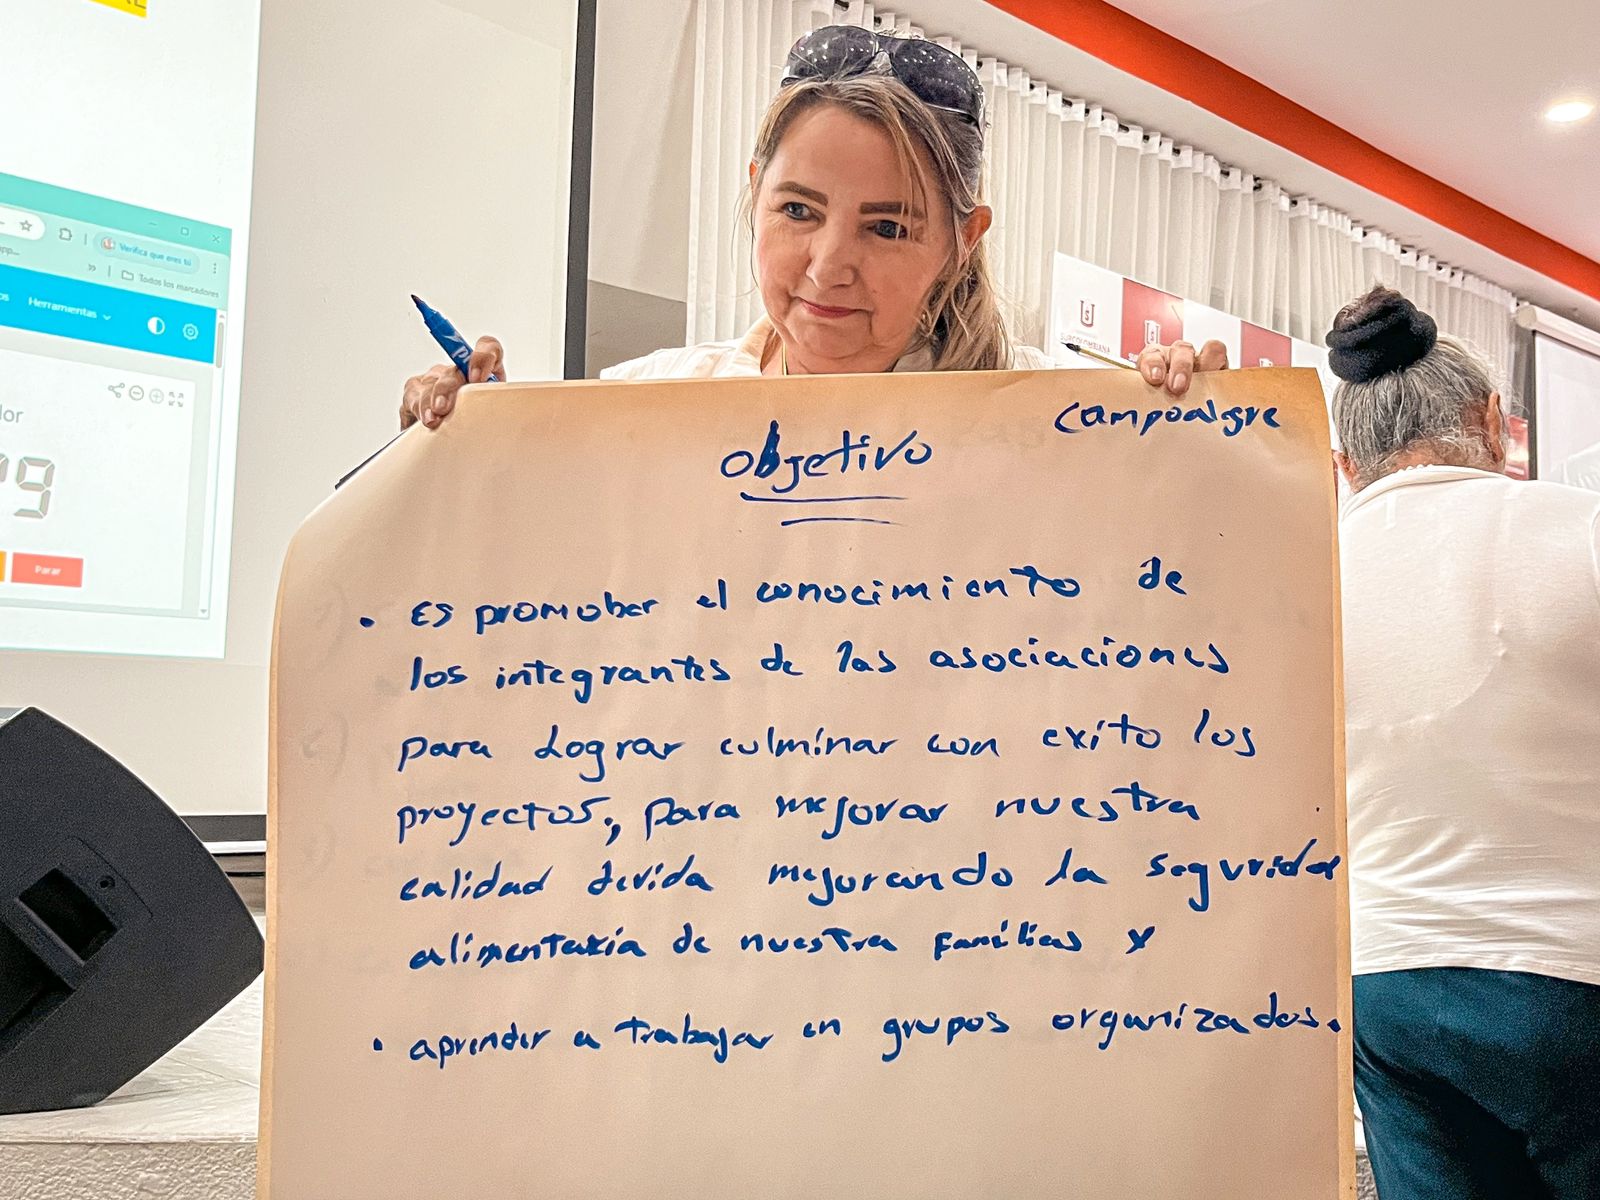 Verifica que eres tú
Todos los marcadores
Herramientas
dor
9
Parar
SURCOLOMBIANA
Campoalegre
objetivo
• Es promober el conocimiento de
los integrantes de las asociaciones
para Lograr culminar con exito los
proyectos, para mejorar nuestra
calidad devida mejorando la seguridad
alimentaria de nuestra familias y
• aprender a trabajar en grupos organizados.